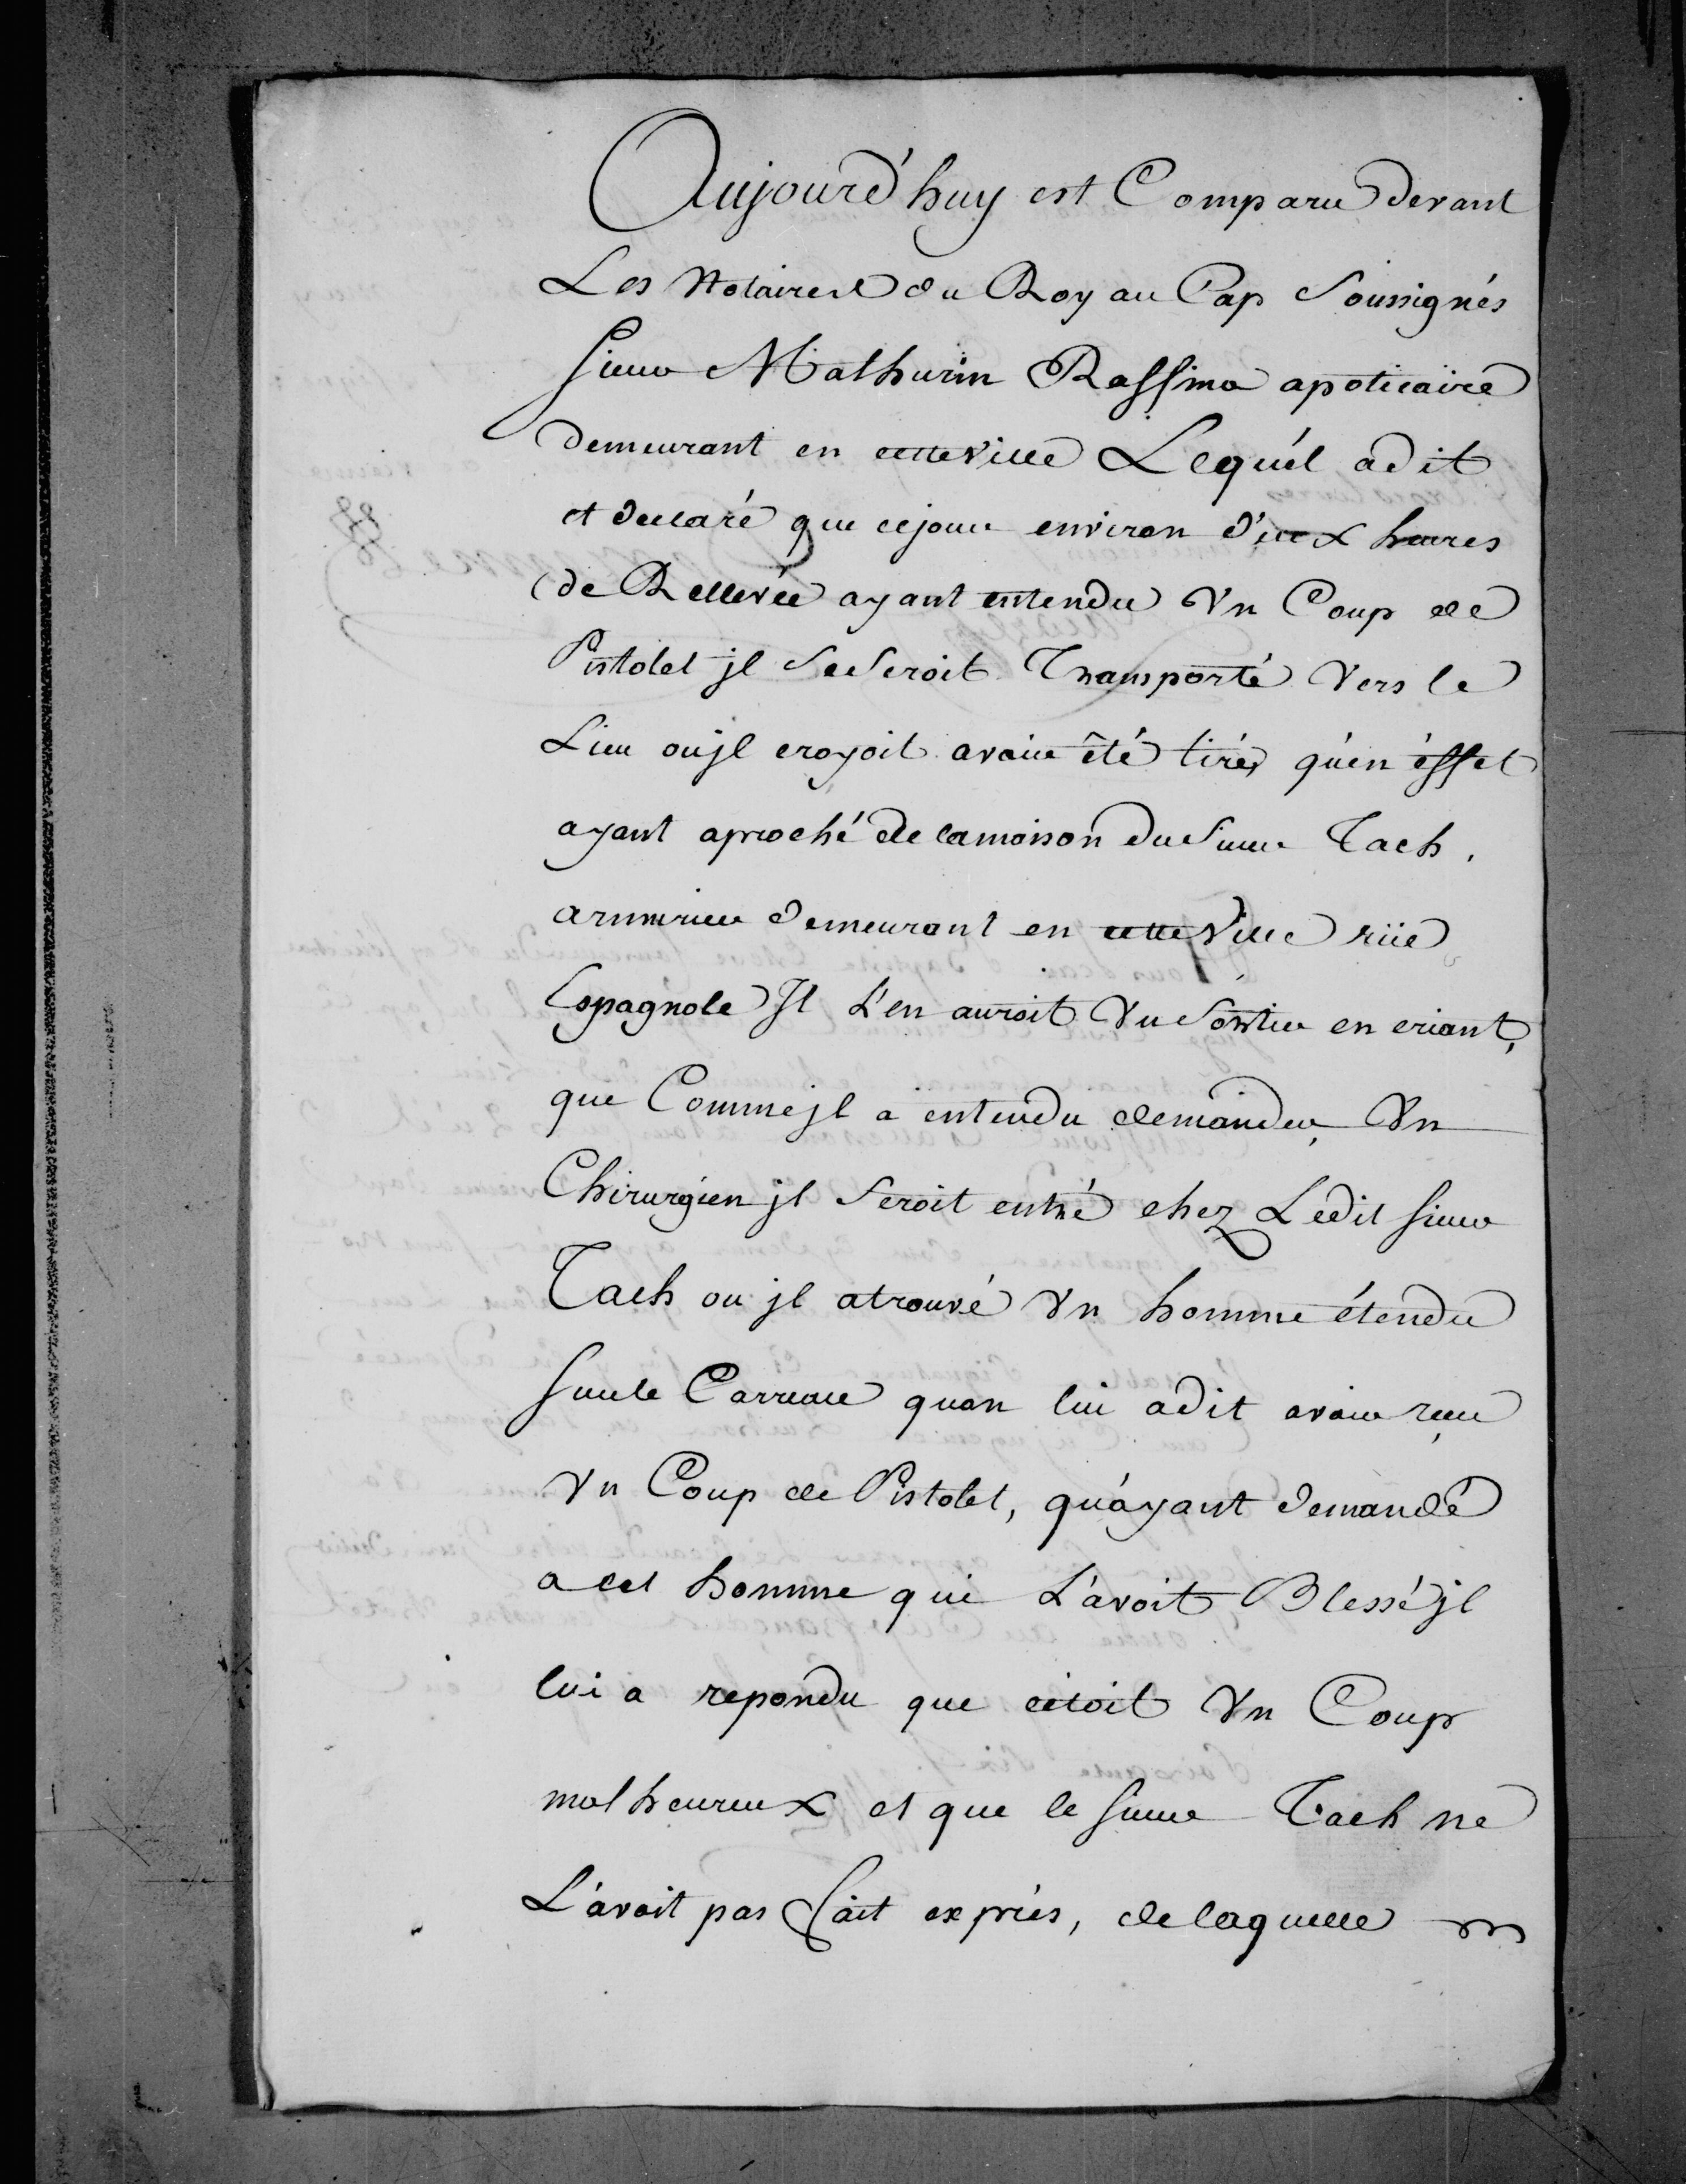 Aujourd'huy est Comparu devant
Les Notaires du Roy au Cap Soussignés
Sieur Mathurin Rassina apoticaire
demeurant en cette ville Lequél a dit
et declaré que ce jour environ d'eux heures
de Rellevée ayant entendu Vn Coup de
Pistolet jl se seroit Transporté Vers le
Lieu ou jl croyoit avoir êté tiré, qu'en éffet
ayant aproché de la maison du Sieur Tach,
armurier demeurant en cette Ville rüe
Espagnole Jl L'en auroit Vu Sortir en criant,
que Comme jl a entendu demander, Vn
Chirurgien jl Seroit entré chez Ledit Sieur
Tach ou jl a trouvé Vn homme étendu
Sur le Carreau quon lui a dit avoir reçu
Vn Coup de Pistolet, qu'ayant demandé
a cet homme qui L'avoit Blessé jl
lui a repondu que cétoit Vn Coup
malheureux et que le Sieur Tach ne
L'avoit pas fait exprès, de laquelle